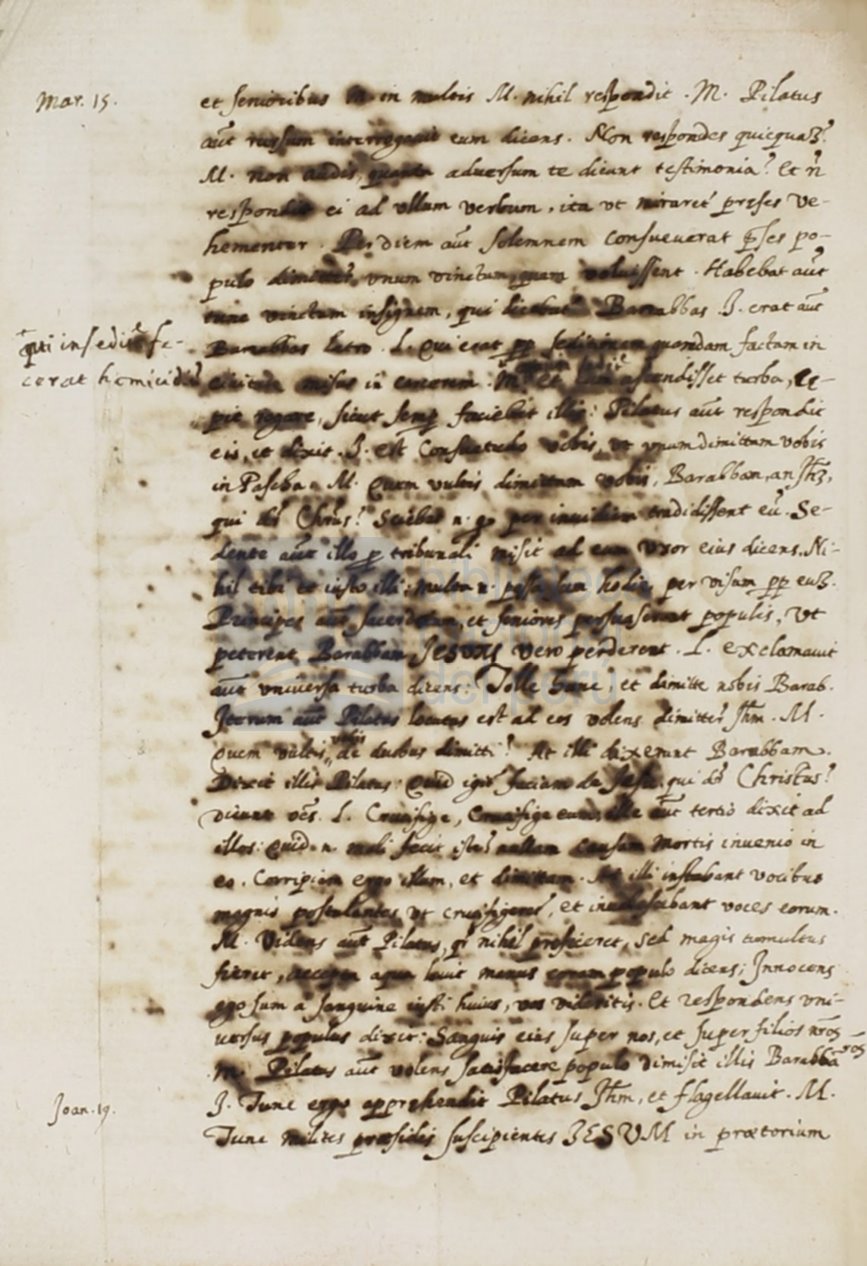 Mar. 15.
et senioribus in multis M. nihil respondit. M. Pilatus
aut rursum interrogavit eum dicens. Non respondes quicquaʒ?
M. non audis, quanta adversum te dicunt testimonia? Et n̄
respondit ei ad ullum verbum, ita ut miraret preses ve-
hementer. Per diem aut solemnem consueuerat p̄ses po-
pulo dimittere unum vinctum, quem voluissent. Habebat aut
tunc vinctum insignem, qui dicebat Barabbas. J. erat aut
qui in seditiōe fe-
cerat homicidiū
Barabbas latro. L. Qui erat pp seditionem quandam factam in
civitate missus in carcerem. M. Et cum ascendisset turba, ce-
pit rogare, sicut semp faciebat illis: Pilatus aut respondit
eis, et dixit. J. est Consuetudo vobis, ut unum dimittam vobis
in Pascha. M. Quem vultis dimittam vobis, Barabban, an Jhʒ,
qui dr̄ Chrūs? Sciebat n. q, per invidiam tradidissent eū. Se-
dente aut illo p tribunali misit ad eum Uxor eius dicens. Ni-
hil tibi et iusto illi: multa n. passa sum hodie per visum pp euʒ.
Principes aut sacerdotum, et seniores persuaserunt populis, Ut
peterent Barabbam JESVM vero perderent. L. exclamauit
aut universa turba dicens: Tolle hunc, et dimitte nobis Barab.
Iterum aut Pilatus locutus est ad eos volens dimittere Jhm. M.
Quem vultis vobis de duobus dimitti? At illi dixerunt Barabbam.
Dixit illis Pilatus Quid igit faciam de Jesu, qui dr̄ Christus?
Dicunt oēs. L. Crucifige, Crucifige eum, ille aut tertio dixit ad
illos: Quid n. mali fecit iste? nullam causam Mortis inuenio in
eo. Corripiam ergo illum, et dimittam. At illi instabant vocibus
magnis postulantes ut crucifigeret, et invalescebant voces eorum.
M. Videns aut Pilatus, q nihil proficeret, sed magis tumultus
fieret, accepta aqua lavit manus coram populo dicens; Innocens
ego sum a sanguine iusti huius, vos videritis. Et respondens uni-
versus populus dixit: Sanguis eius super nos, et super filios nros
M. Pilatus aut volens satisfacere populo dimisit illis Barabbā
Joan. 19.
J. Tunc ergo apprehendit Pilatus Jhm, et flagellavit. M.
Tunc milites præsidis suscipientes JESVM in prætorium